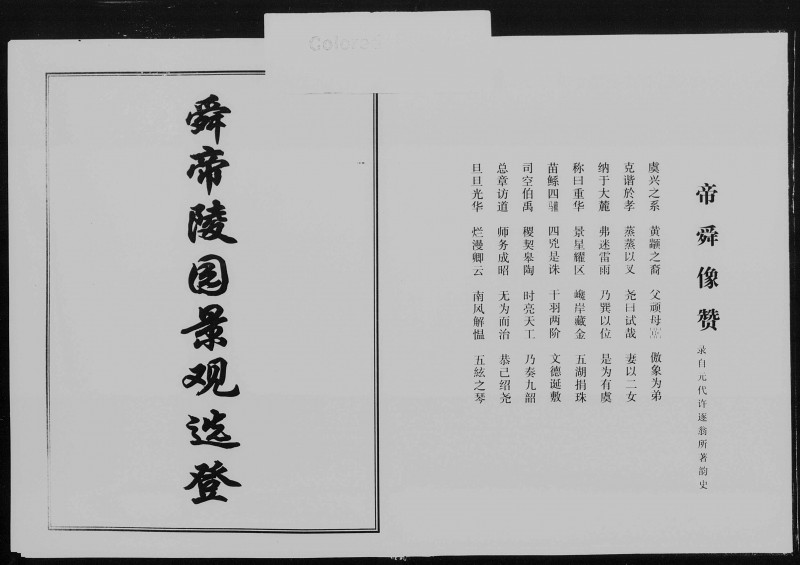 舜帝陵园景观选登
帝舜像赞
录自元代许逐翁所著韵史
虞兴之系 黄颛之裔 父顽母 傲象为弟
克谐於孝 蒸蒸以乂 尧曰试哉 妻以二女
纳于大麓 弗迷雷雨 乃巽以位 是为有虞
称曰重华 景星耀区 巉岸藏金 五湖捐珠
苗鲧四 四凶是诛 干羽两阶 文德诞敷
司空伯禹 稷契皋陶 时亮天工 乃奏九韶
总章访道 师务成昭 无为而治 恭己绍尧
旦旦光华 烂漫卿云 南风解愠 五絃之琴